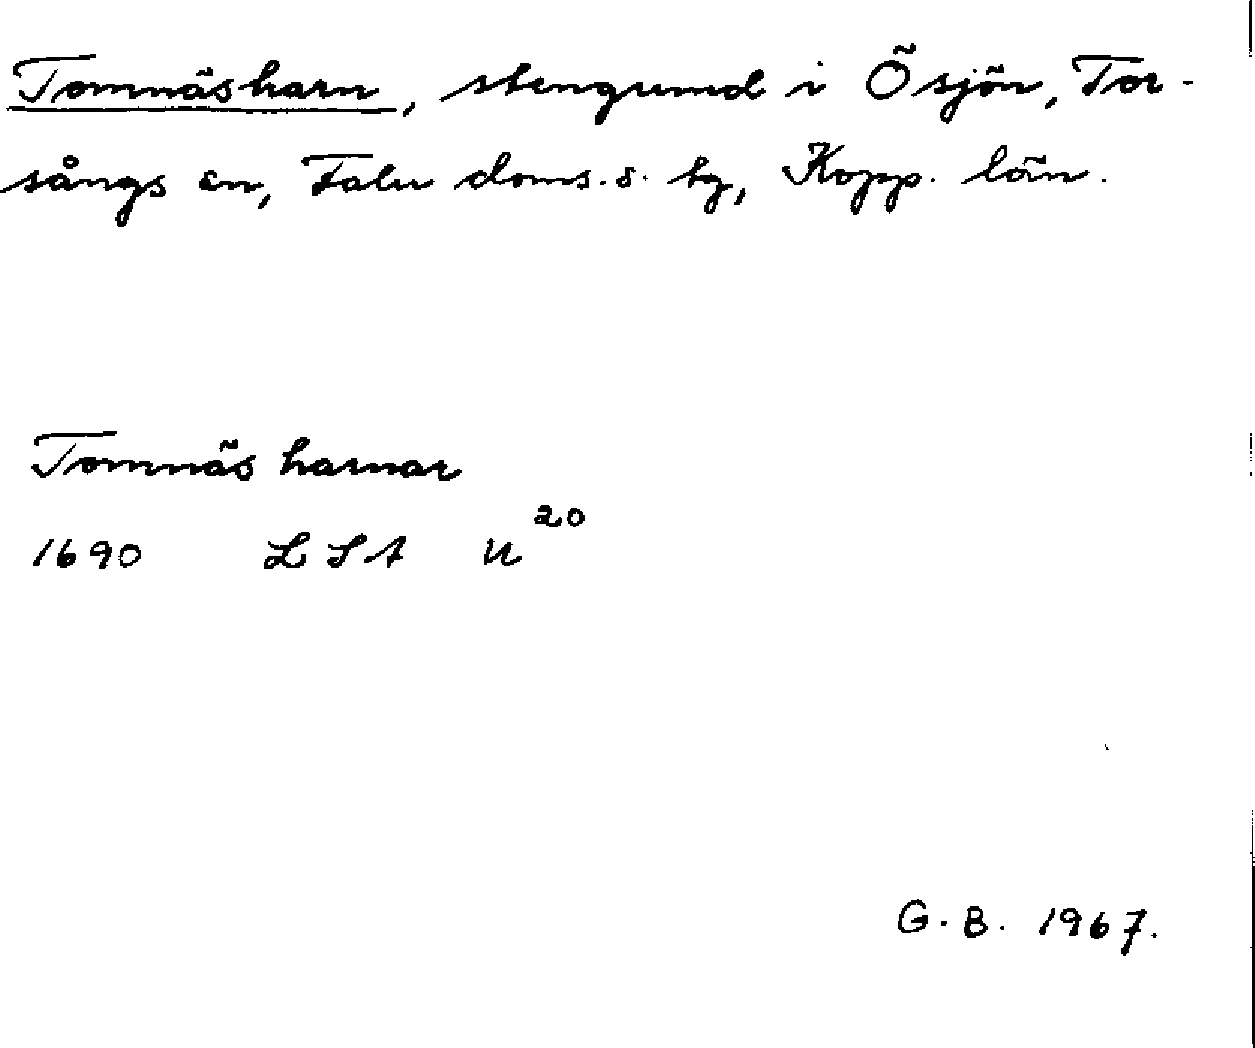 Tomnäsharn, stengrund i Ösjön, Tor-
sångs sn, Falu doms. s. tg, Kopp. län.
Tomnäs harnar
1690 LSA U²⁰
G.B. 1967.